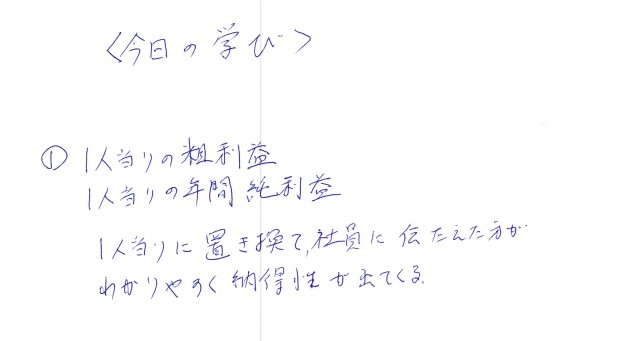 <今日の学び>
① 1人当りの粗利益
1人当りの年間純利益
1人当りに置き換て、社員に伝たえた方が
わかりやすく納得性が出てくる。